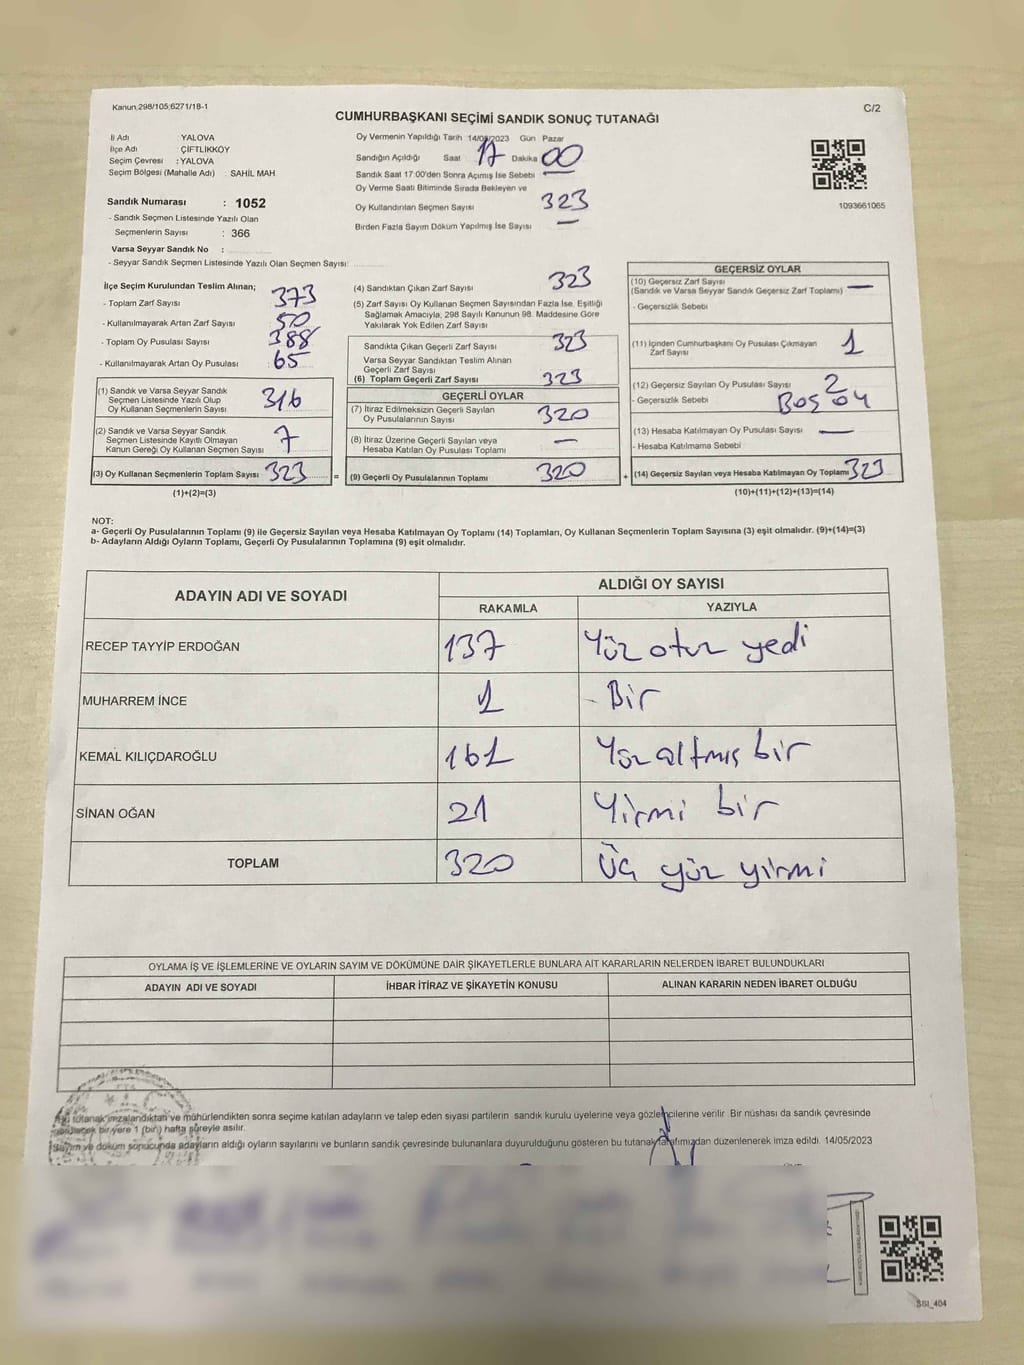 Kanun:298/105;6271/18-1
C/2
CUMHURBAŞKANI SEÇİMİ SANDIK SONUÇ TUTANAĞI
İl Adı : YALOVA
İlçe Adı : ÇİFTLİKKÖY
Seçim Çevresi : YALOVA
Seçim Bölgesi (Mahalle Adı) : SAHİL MAH
Oy Vermenin Yapıldığı Tarih 14/05/2023 Gün Pazar
Sandığın Açıldığı Saat 17 Dakika 00
Sandık Saat 17:00'den Sonra Açımış İse Sebebi —
Oy Verme Saati Bitiminde Sırada Bekleyen ve
Oy Kullandırılan Seçmen Sayısı 323
Birden Fazla Sayım Döküm Yapılmış İse Sayısı —
1093661065
Sandık Numarası : 1052
- Sandık Seçmen Listesinde Yazılı Olan
Seçmenlerin Sayısı : 366
Varsa Seyyar Sandık No :
- Seyyar Sandık Seçmen Listesinde Yazılı Olan Seçmen Sayısı:
İlçe Seçim Kurulundan Teslim Alınan;
- Toplam Zarf Sayısı 373
- Kullanılmayarak Artan Zarf Sayısı 50
- Toplam Oy Pusulası Sayısı 388
- Kullanılmayarak Artan Oy Pusulası 65
(1) Sandık ve Varsa Seyyar Sandık
Seçmen Listesinde Yazılı Olup
Oy Kullanan Seçmenlerin Sayısı 316
(2) Sandık ve Varsa Seyyar Sandık
Seçmen Listesinde Kayıtlı Olmayan
Kanun Gereği Oy Kullanan Seçmen Sayısı 7
(3) Oy Kullanan Seçmenlerin Toplam Sayısı 323 =
(1)+(2)=(3)
(4) Sandıktan Çıkan Zarf Sayısı 323
(5) Zarf Sayısı Oy Kullanan Seçmen Sayısından Fazla İse, Eşitliği
Sağlamak Amacıyla, 298 Sayılı Kanunun 98. Maddesine Göre
Yakılarak Yok Edilen Zarf Sayısı
Sandıkta Çıkan Geçerli Zarf Sayısı 323
Varsa Seyyar Sandıktan Teslim Alınan
Geçerli Zarf Sayısı
(6) Toplam Geçerli Zarf Sayısı 323
GEÇERLİ OYLAR
(7) İtiraz Edilmeksizin Geçerli Sayılan
Oy Pusulalarının Sayısı 320
(8) İtiraz Üzerine Geçerli Sayılan veya
Hesaba Katılan Oy Pusulası Toplamı —
(9) Geçerli Oy Pusulalarının Toplamı 320 +
GEÇERSİZ OYLAR
(10) Geçersiz Zarf Sayısı
(Sandık ve Varsa Seyyar Sandık Geçersiz Zarf Toplamı) —
- Geçersizlik Sebebi
(11) İçinden Cumhurbaşkanı Oy Pusulası Çıkmayan
Zarf Sayısı 1
(12) Geçersiz Sayılan Oy Pusulası Sayısı 2
- Geçersizlik Sebebi Boş oy
(13) Hesaba Katılmayan Oy Pusulası Sayısı —
- Hesaba Katılmama Sebebi
(14) Geçersiz Sayılan veya Hesaba Katılmayan Oy Toplamı 323
(10)+(11)+(12)+(13)=(14)
NOT:
a- Geçerli Oy Pusulalarının Toplamı (9) ile Geçersiz Sayılan veya Hesaba Katılmayan Oy Toplamı (14) Toplamları, Oy Kullanan Seçmenlerin Toplam Sayısına (3) eşit olmalıdır. (9)+(14)=(3)
b- Adayların Aldığı Oyların Toplamı, Geçerli Oy Pusulalarının Toplamına (9) eşit olmalıdır.
ADAYIN ADI VE SOYADI
ALDIĞI OY SAYISI
RAKAMLA YAZIYLA
RECEP TAYYİP ERDOĞAN 137 Yüz otuz yedi
MUHARREM İNCE 1 - Bir
KEMAL KILIÇDAROĞLU 161 Yüz altmış bir
SİNAN OĞAN 21 Yirmi bir
TOPLAM 320 Üç yüz yirmi
OYLAMA İŞ VE İŞLEMLERİNE VE OYLARIN SAYIM VE DÖKÜMÜNE DAİR ŞİKAYETLERLE BUNLARA AİT KARARLARIN NELERDEN İBARET BULUNDUKLARI
ADAYIN ADI VE SOYADI İHBAR İTİRAZ VE ŞİKAYETİN KONUSU ALINAN KARARIN NEDEN İBARET OLDUĞU
tutanak imzalandıktan ve mühürlendikten sonra seçime katılan adayların ve talep eden siyasi partilerin sandık kurulu üyelerine veya gözlemcilerine verilir. Bir nüshası da sandık çevresinde
bir yere 1 (bir) hafta süreyle asılır.
Sayım ve döküm sonucunda adayların aldığı oyların sayılarını ve bunların sandık çevresinde bulunanlara duyurulduğunu gösteren bu tutanak tarafımızdan düzenlenerek imza edildi. 14/05/2023
SBI_404